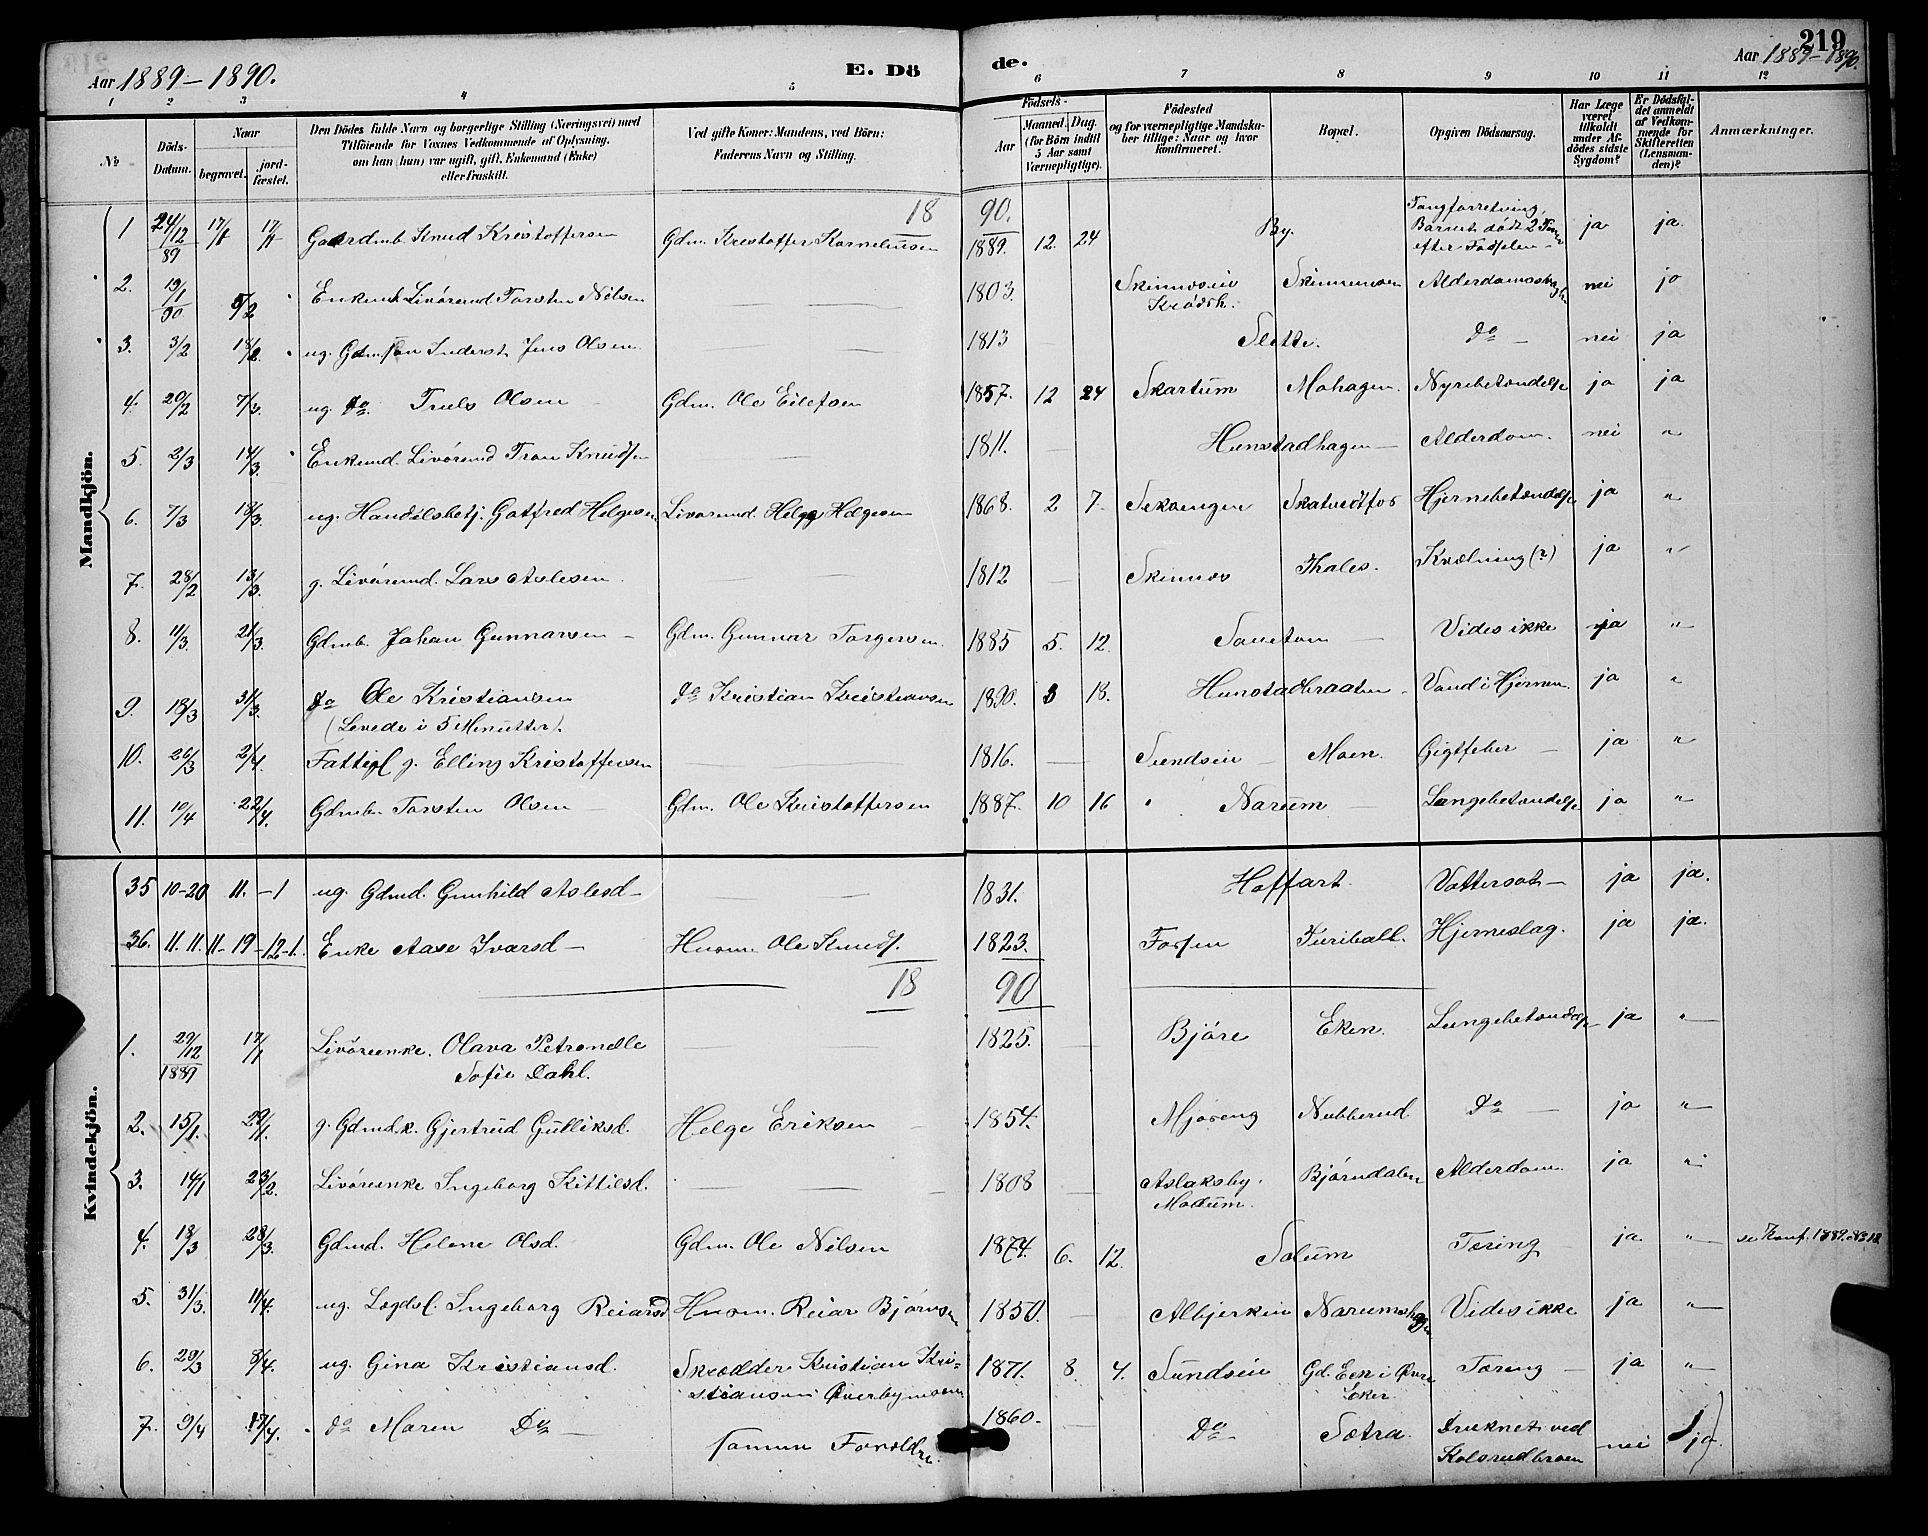 219
Aar 1889-1890. E. Dö de. Aar 1889-1890.
1 2 3 4 5 6 7 8 9 10 11 12
No Döds-Datum. Naar begravet. jordfæstet. Den Dödes fulde Navn og borgerlige Stilling (Næringsvei) med Tilföiende for Voxnes Vedkommende af Oplysning, om han (hun) var ugift, gift, Enkemand (Enke) eller fraskilt. Ved gifte Koner: Mandens, ved Börn: Faderens Navn og Stilling. Födsels- Aar Maaned. Dag. (for Börn indtil 5 Aar samt Værnepligtige). Födested og for værnepligtige Mandskaber tillige: Naar og hvor konfirmeret. Bopæl. Opgiven Dödsaarsag. Har Læge været tilkaldt under Afdödes sidste Sygdom? Er Dödsfaldet anmeldt af Vedkommende for Skifteretten (Lensmanden)? Anmærkninger.
Mandkjön.
18 90.
1 24/12 89 17/1 17/1 Gaardmb. Knud Kristoffersen Gdm. Kristoffer Kornelius​en 1889. 12. 24 By. Tangforretning, Barnet död 2 Timer efter Födselen - ja ja.
2. 19/1 90 5/2 Enkemd. Livöremd Torsten Nilsen 1803. Skinnesein Krödsh. Skinnemoen Alderdomssvaghe nei ja
3. 3/2 18/2 ug. Gdmsön Inderst Jens Olsen 1813 Slette. Do nei ja
4. 20/2 7/3. ug. Do. Truls Olsen Gdm. Ole Eilefsen 1857. 12 24 Skartum Mohagen. Nyrebetændelse ja ja
5. 2/3 14/3. Enkemd. Livöremd Tron Knudsen 1811. Hunstadhagen Alderdom. nei "
6. 7/3 18/3. ug. Handelsbetj. Gotfred Helgesen Livöremd. Helge Helgesen 1868. 2 7. Sekvengen Skatvedtfos Hjernebetændelse ja "
7. 28/2 13/3. g. Livöremd. Lars Aslesen 1812 Skinnes Thales. Kvælning (?) ja "
8. 11/3. 21/3. Gdmb. Johan Gunnarsen Gdm. Gunnar Torgersen. 1885 5. 12. Vides ikke ja "
9. 18/3 31/3. Do Ole Kristiansen Do Kristian Kristiansen 1890. 3 18. Hunstadbraaten Vand i Hjernen ja "
(Levede i 5 Minutter).
10. 26/3 2/4. Fattigl g. Elling Kristoffersen 1816. Sundsein Moen. Gigtfeber ja "
11. 10/4 22/4. Gdmb. Torsten Olsen Gdm. Ole Kristoffersen 1887. 10 16 Narum Lungebetændelse ja "
Kvindekjön.
35 10-20 11.-1 ug. Gdmd. Gunhild Aslesd 1831. Hoffart. Vattersot ja ja.
36. 11.11. 11-19-12-1. Enke Aase Ivarsd Husm. Ole Knuds. 1823. Fossen Furiball. Hjerneslag. ja ja.
18 90
1. 29/12 1889 17/1 Livöreenke. Olava Petronelle Sofie Dahl. 1825. Björe Eken. Lungebetændelse ja "
2. 15/1. 29/1. g. Gdmdk. Gjertrud Gulliksd. Helge Eriksen 1854. Mjöseng Nubberud Do ja "
3. 14/1 23/2. Livöreenke Ingeborg Kittilsd. 1808 Aslaksby. Modum. Björndalen Alderdom. ja "
4. 18/3 28/3. Gdmd. Helene Olsd. Gdm. Ole Nilsen 1874. 6. 12. Solum Tæring ja " se Konf. 1889. No 18
5. 31/3. 11/4. ug. Lægdsl. Ingeborg Reiarsd Husm. Reiar Björnsen 1850. Albjerken Narumshagen Vides ikke ja "
6. 29/3 8/4. ug. Gina Kristiansd. Skrædder Kristian Kristiansen Överbymoen 1871. 8. 4. Sundsein Gd. Eek i Övre Eker Tæring ja "
7. 9/4 17/4. Do Maren Do Samme Forældre. 1860. Do Sætra. Druknet ved Kolsrudbroen nei ja.